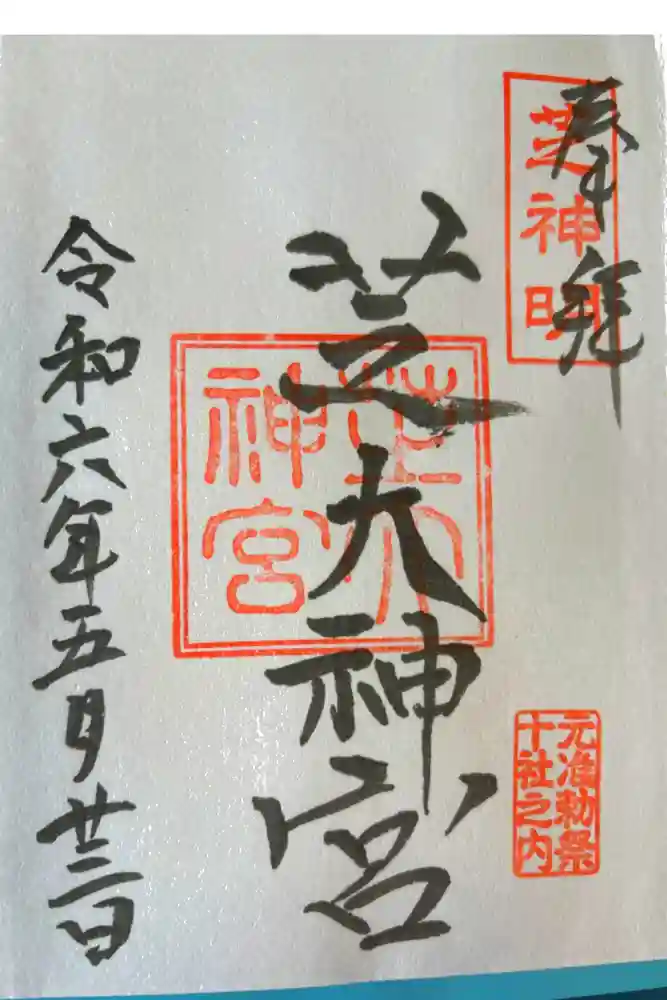 奉拝
芝神明
芝大神宮
芝大
神宮
元准勅祭
十社之内
令和六年五月廿二日